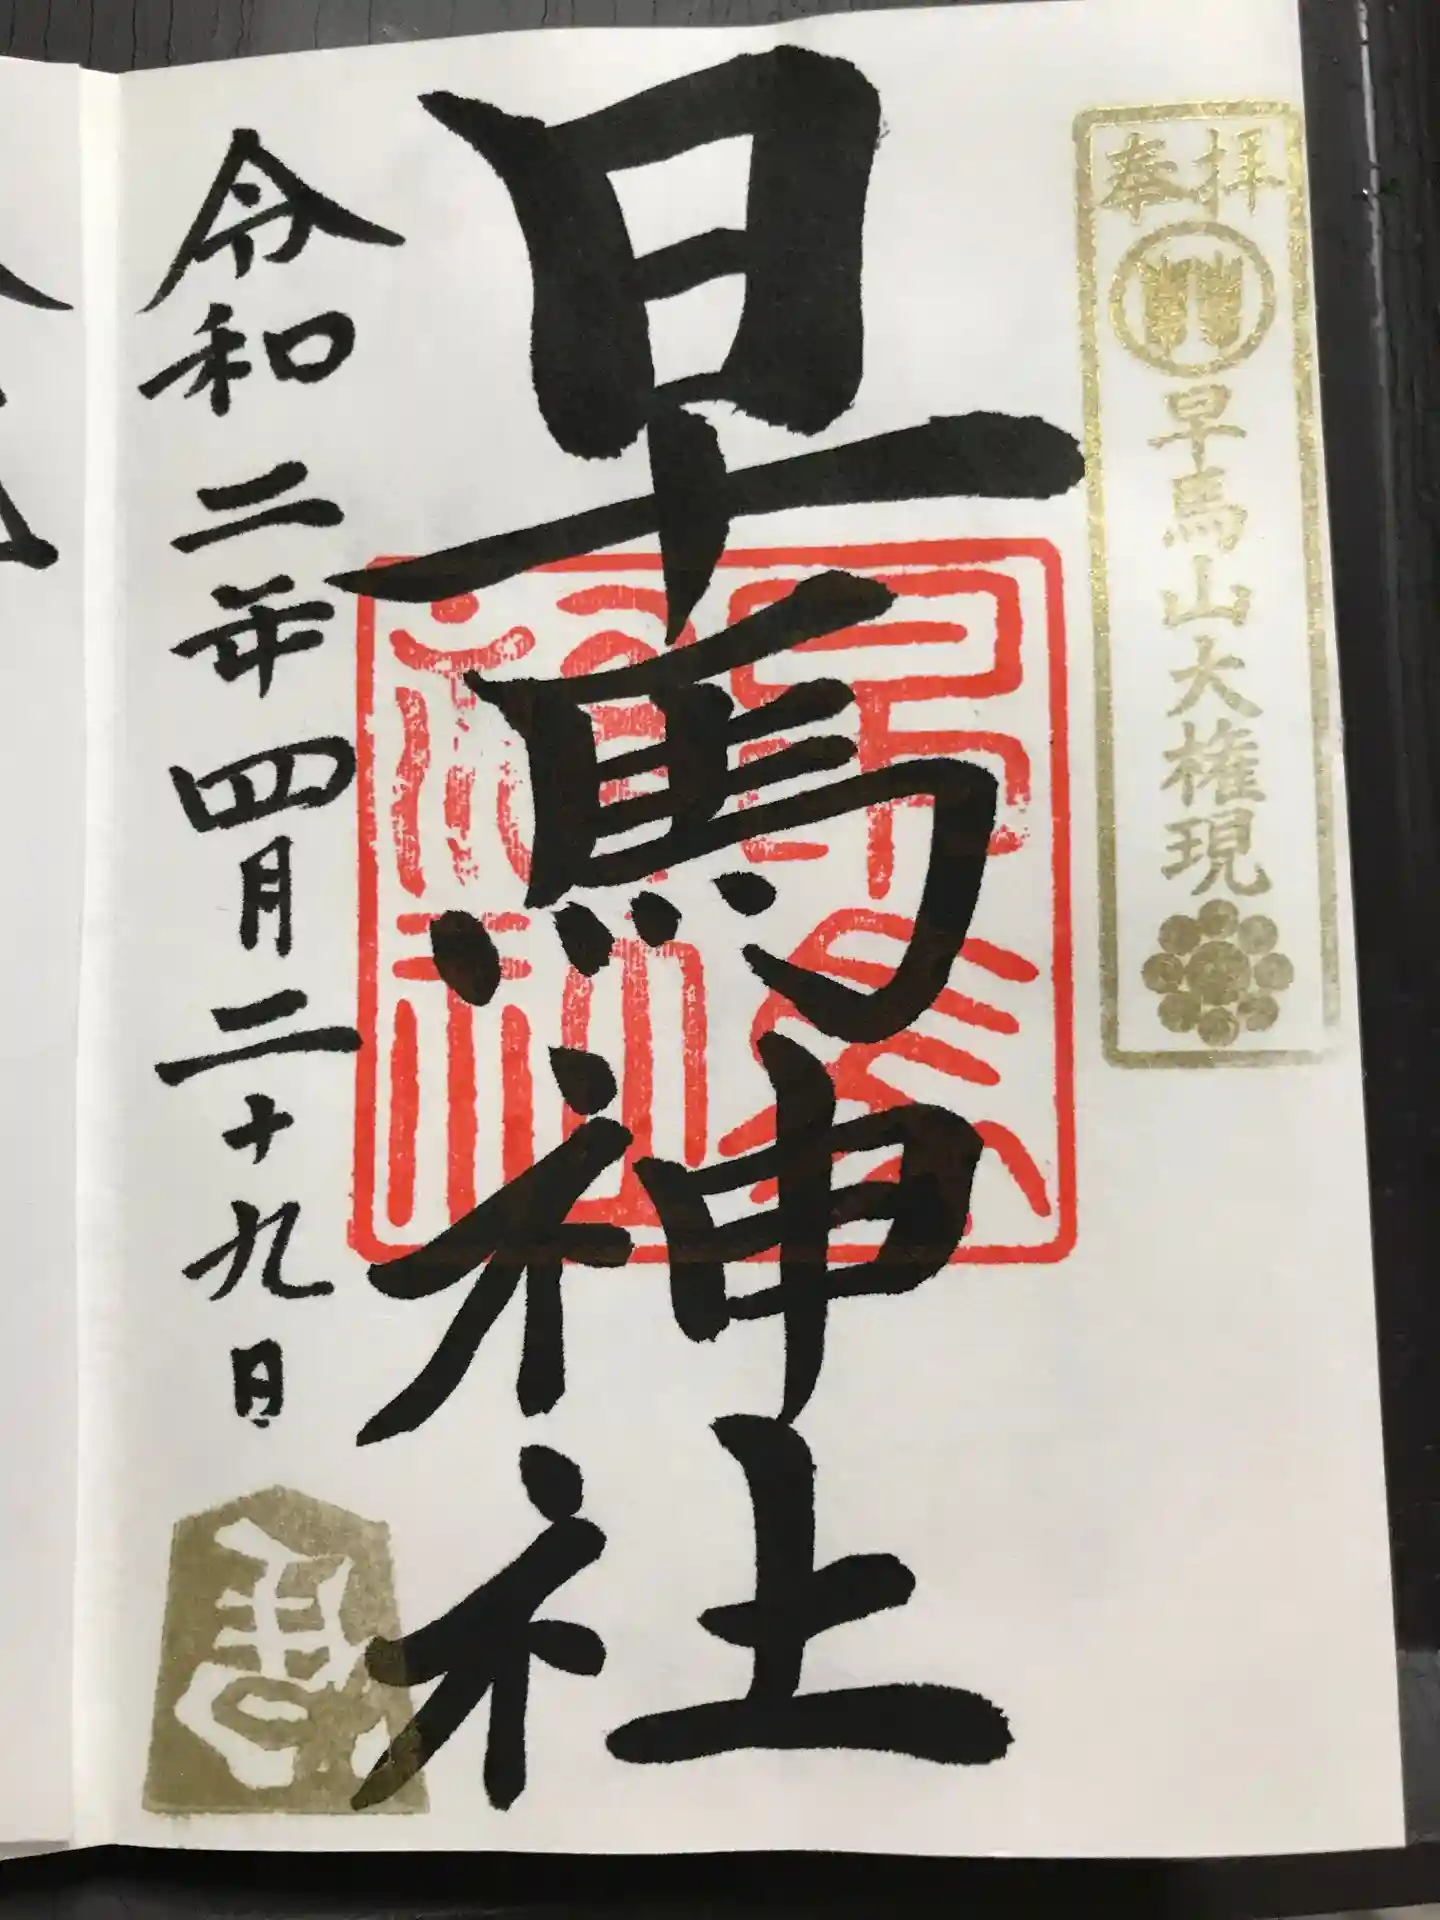 奉拝
早馬山大権現
早馬神社
早馬神社
令和二年四月二十九日